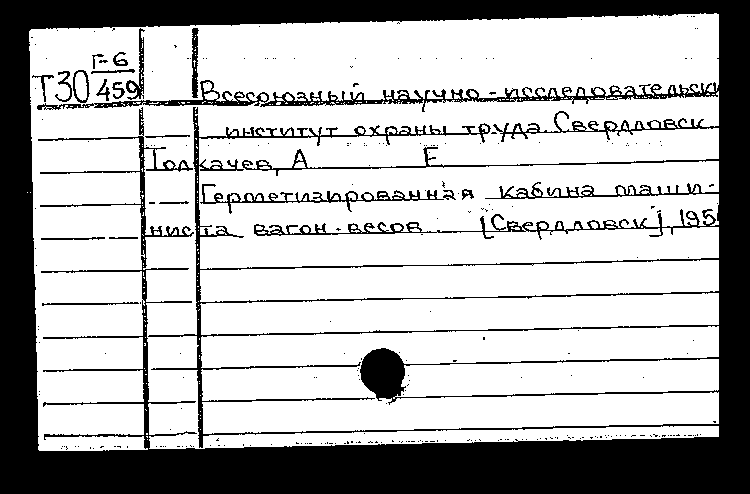 Г-6
Т30 459
Всесоюзный научно-исследовательски
институт охраны труда. Свердловск.
Толкачев, А Е
Герметизированная кабина маши-
ниста вагон-весов [Свердловск], 195